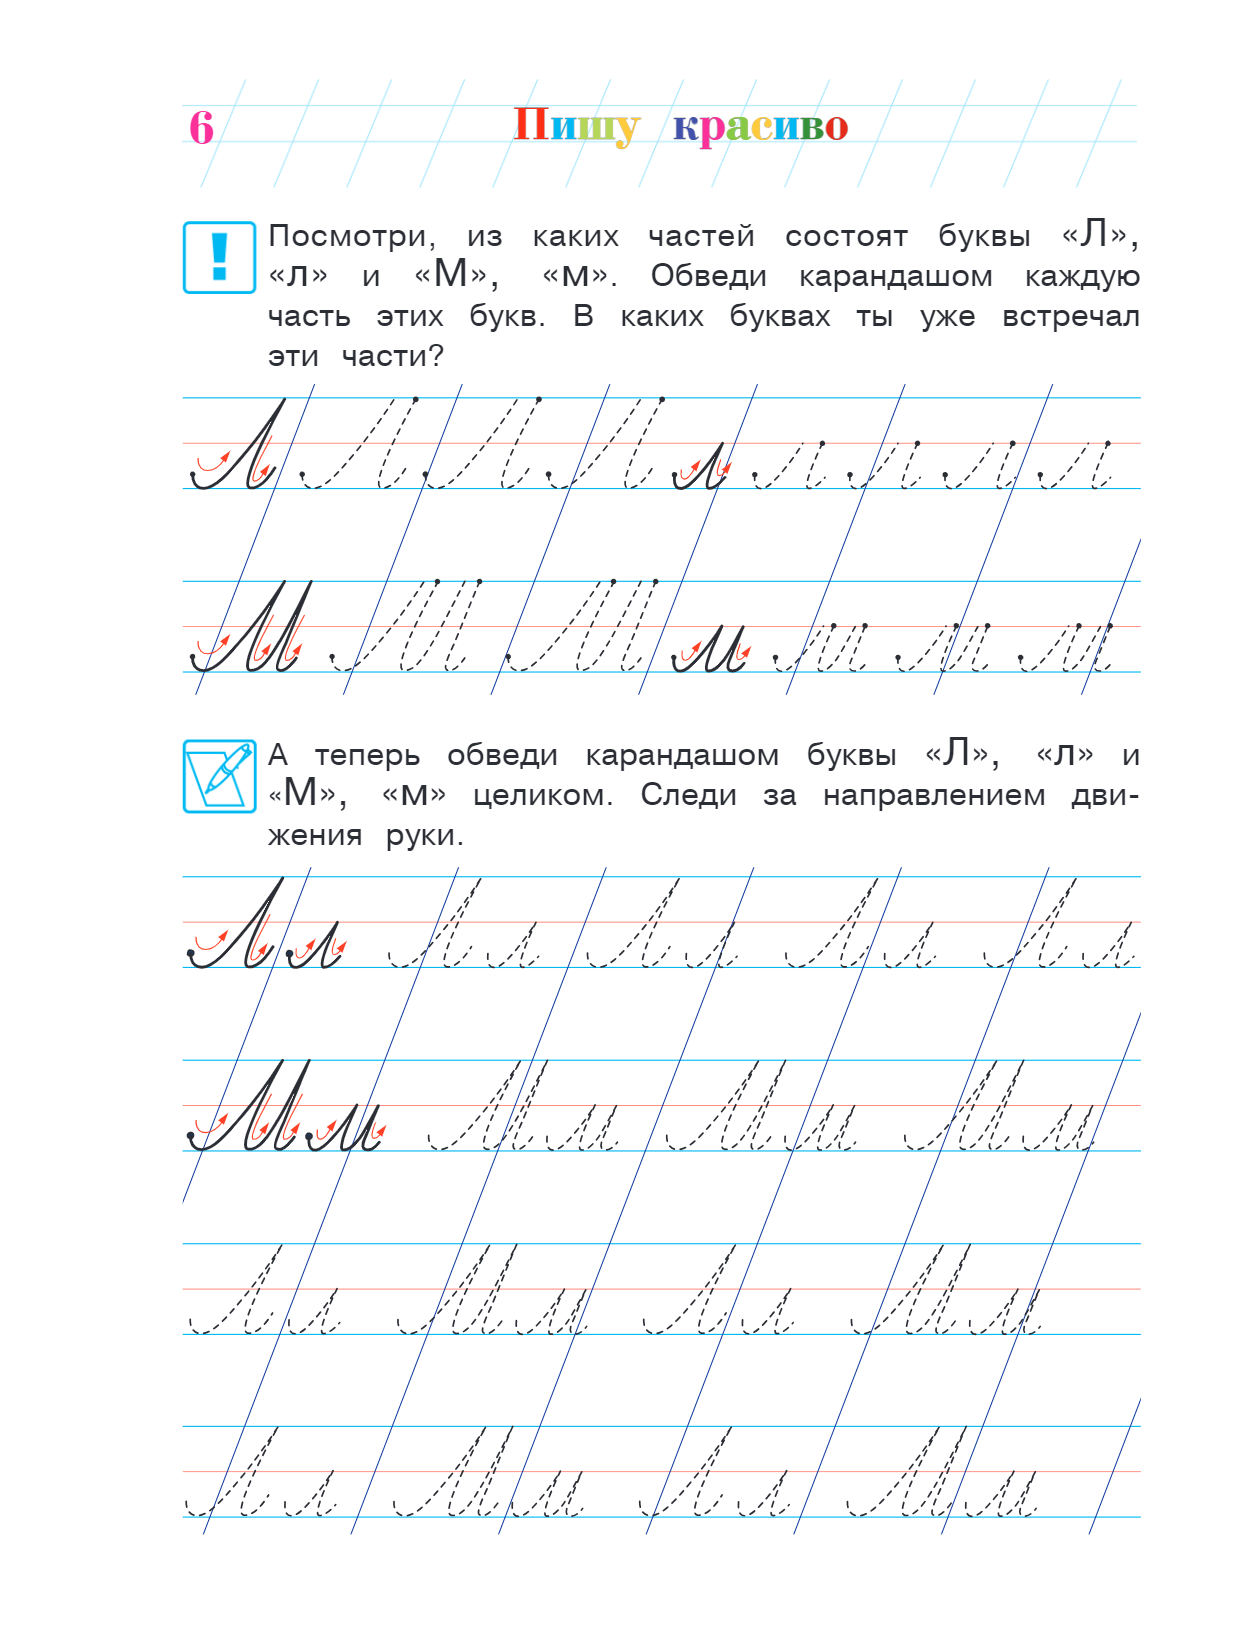 6 Пишу красиво
Посмотри, из каких частей состоят буквы «Л»,
«л» и «М», «м». Обведи карандашом каждую
часть этих букв. В каких буквах ты уже встречал
эти части?
Л Л Л Л л л л л л
М М М м м м м
А теперь обведи карандашом буквы «Л», «л» и
«М», «м» целиком. Следи за направлением дви-
жения руки.
Л л Л л Л л Л л Л л
М м М м М м М м
Л л М м Л л М м
Л л М м Л л М м